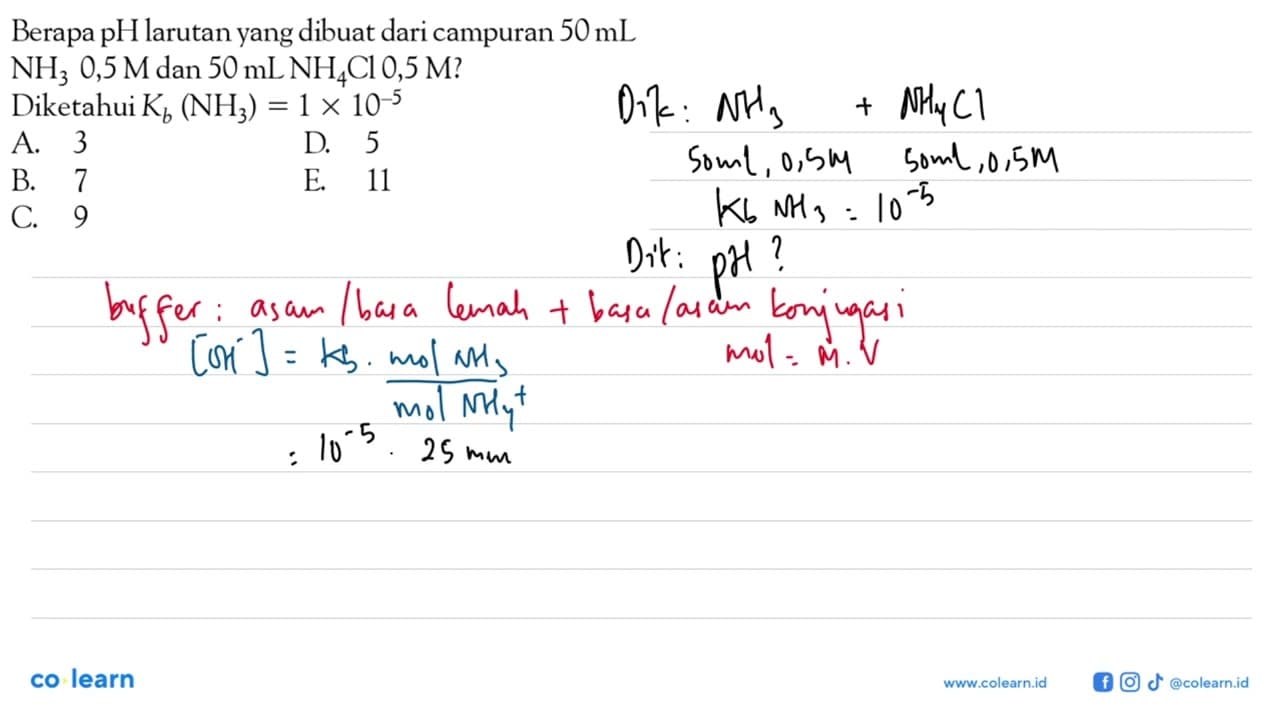 Berapa pH larutan yang dibuat dari campuran 50 mL
NH₃ 0,5 M dan 50 mL NH₄Cl 0,5 M?
Diketahui K_b (NH₃) = 1 × 10⁻⁵
A. 3 D. 5
B. 7 E. 11
C. 9
Dik: NH₃ + NH₄Cl
50ml, 0,5M 50ml, 0,5M
Kb NH₃ = 10⁻⁵
Dit: pH ?
buffer: asam/basa lemah + basa/asam konjugasi
[OH⁻] = Kb. mol NH₃ / mol NH₄⁺
mol = M.V
= 10⁻⁵. 25 mm
co learn
www.colearn.id @colearn.id